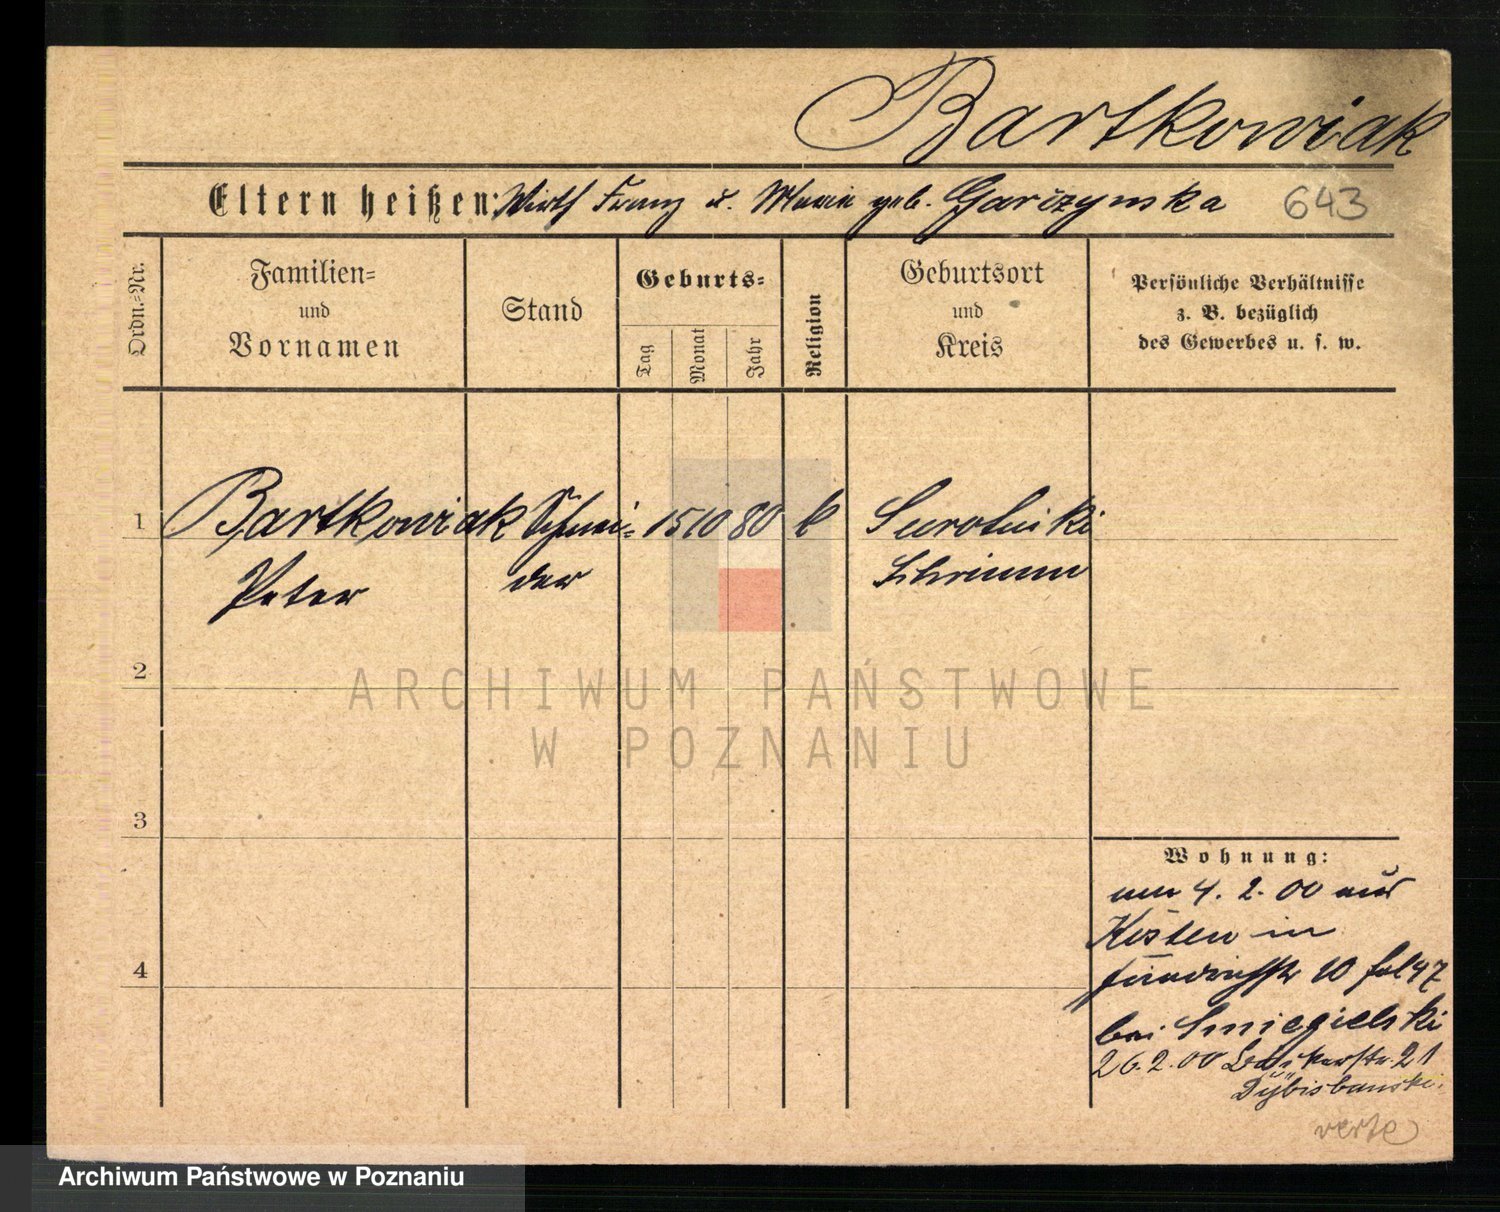 Bartkowiak
Eltern heißen: Wirth Franz u. Marie geb. Garczynska 643
Ordn.=Nr.
Familien=
und
Vornamen
Stand
Geburts=
Tag
Monat
Jahr
Religion
Geburtsort
und
Kreis
Persönliche Verhältnisse
z. B. bezüglich
des Gewerbes u. s. w.
1 Bartkowiak Schnei= 15 10 80 k
Peter der Schrimm
2
ARCHIWUM PAŃSTWOWE
W POZNANIU
3
Wohnung:
4. 2. 00 aus
Kosten in
4 10 47
bei Smiegielski
26.2.00 Bäckerstr. 21
verte
Archiwum Państwowe w Poznaniu